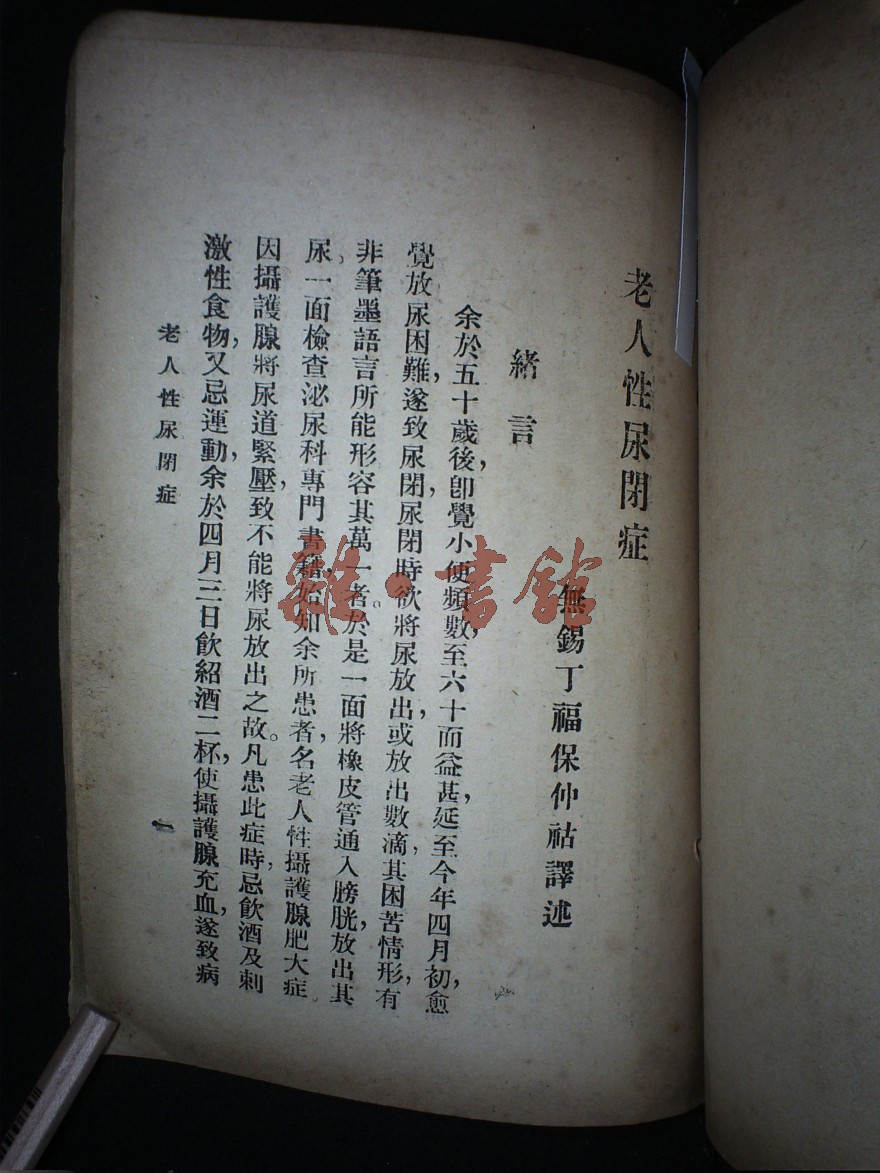 老人性尿閉症
無錫丁福保仲祜譯述
緒言
余於五十歲後，卽覺小便頻數，至六十而益甚，延至今年四月初，愈
覺放尿困難，遂致尿閉，尿閉時欲將尿放出，或放出數滴，其困苦情形，有
非筆墨語言所能形容其萬一者。於是一面將橡皮管通入膀胱，放出其
尿，一面檢查泌尿科專門書籍，始知余所患者，名老人性攝護腺肥大症。
因攝護腺將尿道緊壓，致不能將尿放出之故。凡患此症時，忌飮酒及刺
激性食物，又忌運動，余於四月三日飮紹酒二杯，使攝護腺充血，遂致病
老人性尿閉症
一
雜·書館